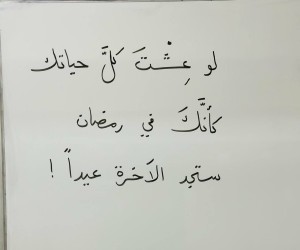 لو عِشْتَ كلَّ حياتك
كأنَّكَ في رمضان
ستجد الآخرة عيداً !